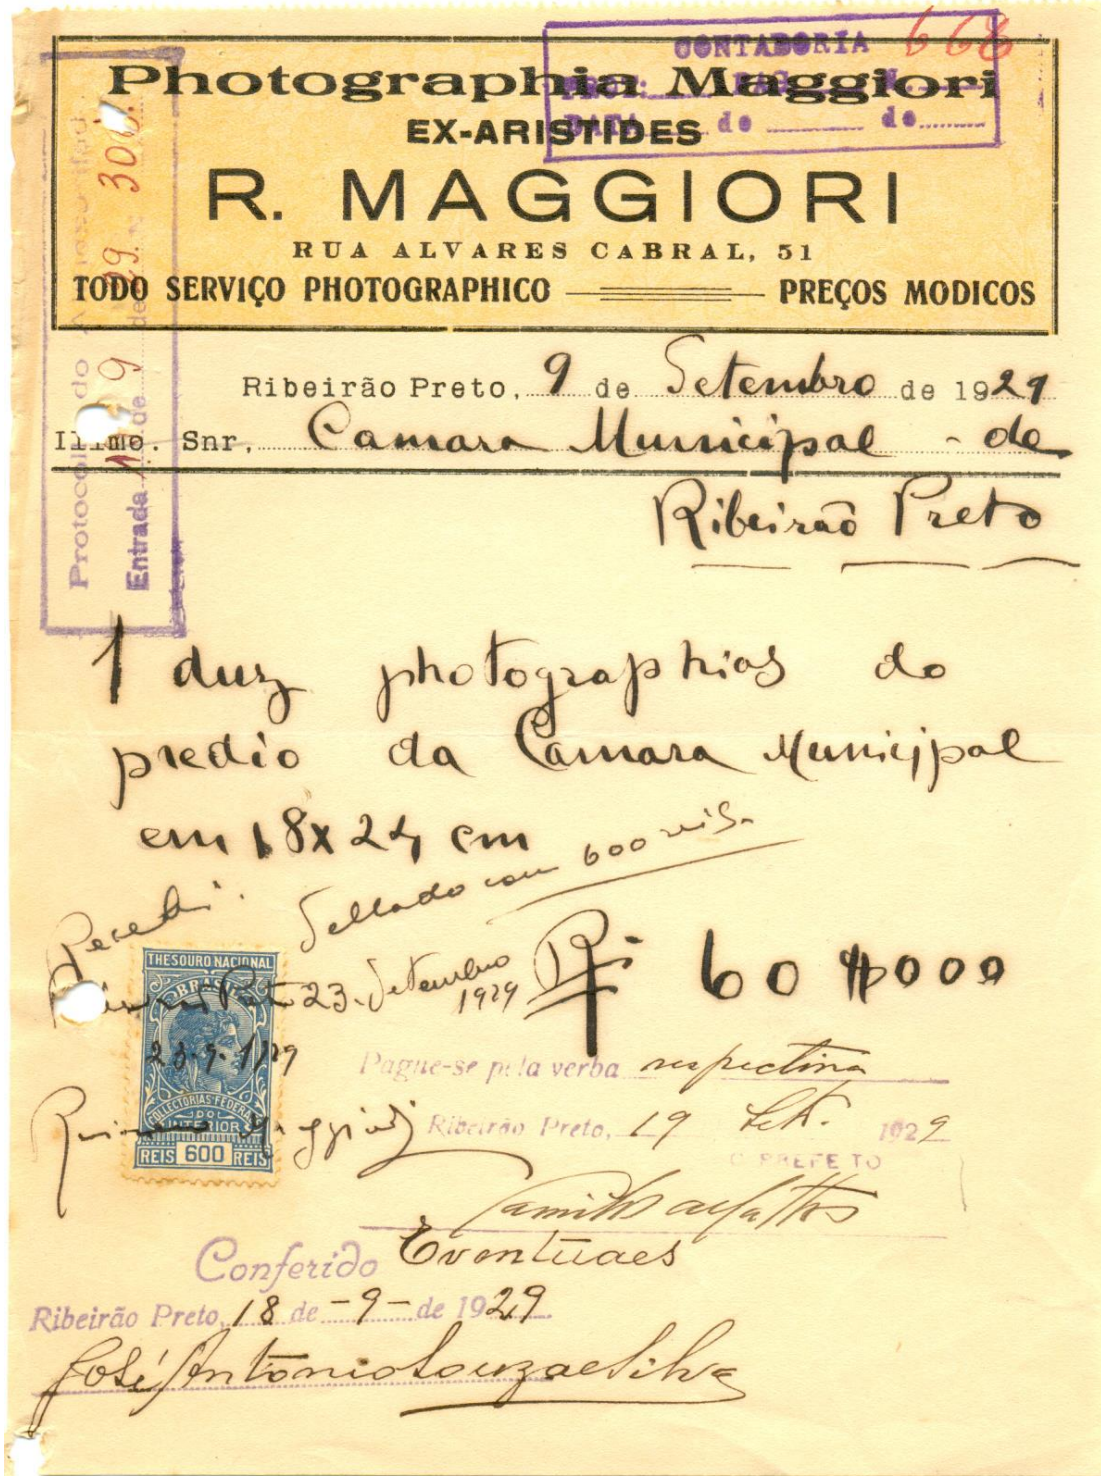 CONTADORIA 668
PROT: PAG. N.
DATA de de
Photographia Maggiori
EX-ARISTIDES
R. MAGGIORI
RUA ALVARES CABRAL, 51
TODO SERVIÇO PHOTOGRAPHICO PREÇOS MODICOS
Protocollo do
Entrada de 9 de 29. 300.
Ribeirão Preto, 9 de Setembro de 1929
Illmo. Snr. Camara Municipal - de
Ribeirão Preto
1 duz photographias do
predio da Camara Municipal
em 18x24 cm
Sellado com 600 reis.
Recebi.
Preto 23. Setembro
1929
Rs 60$000
THESOURO NACIONAL
BRASIL
23-9-1929
COLLECTORIAS FEDERAES
DO
INTERIOR
REIS 600 REIS
Maggiori
Pague-se pela verba respectiva
Ribeirão Preto, 19 Set. 1929
O PREFEITO
Camillo de Mattos
Conferido Eventuaes
Ribeirão Preto, 18 de -9- de 1929
José Antonio Souza e Silva